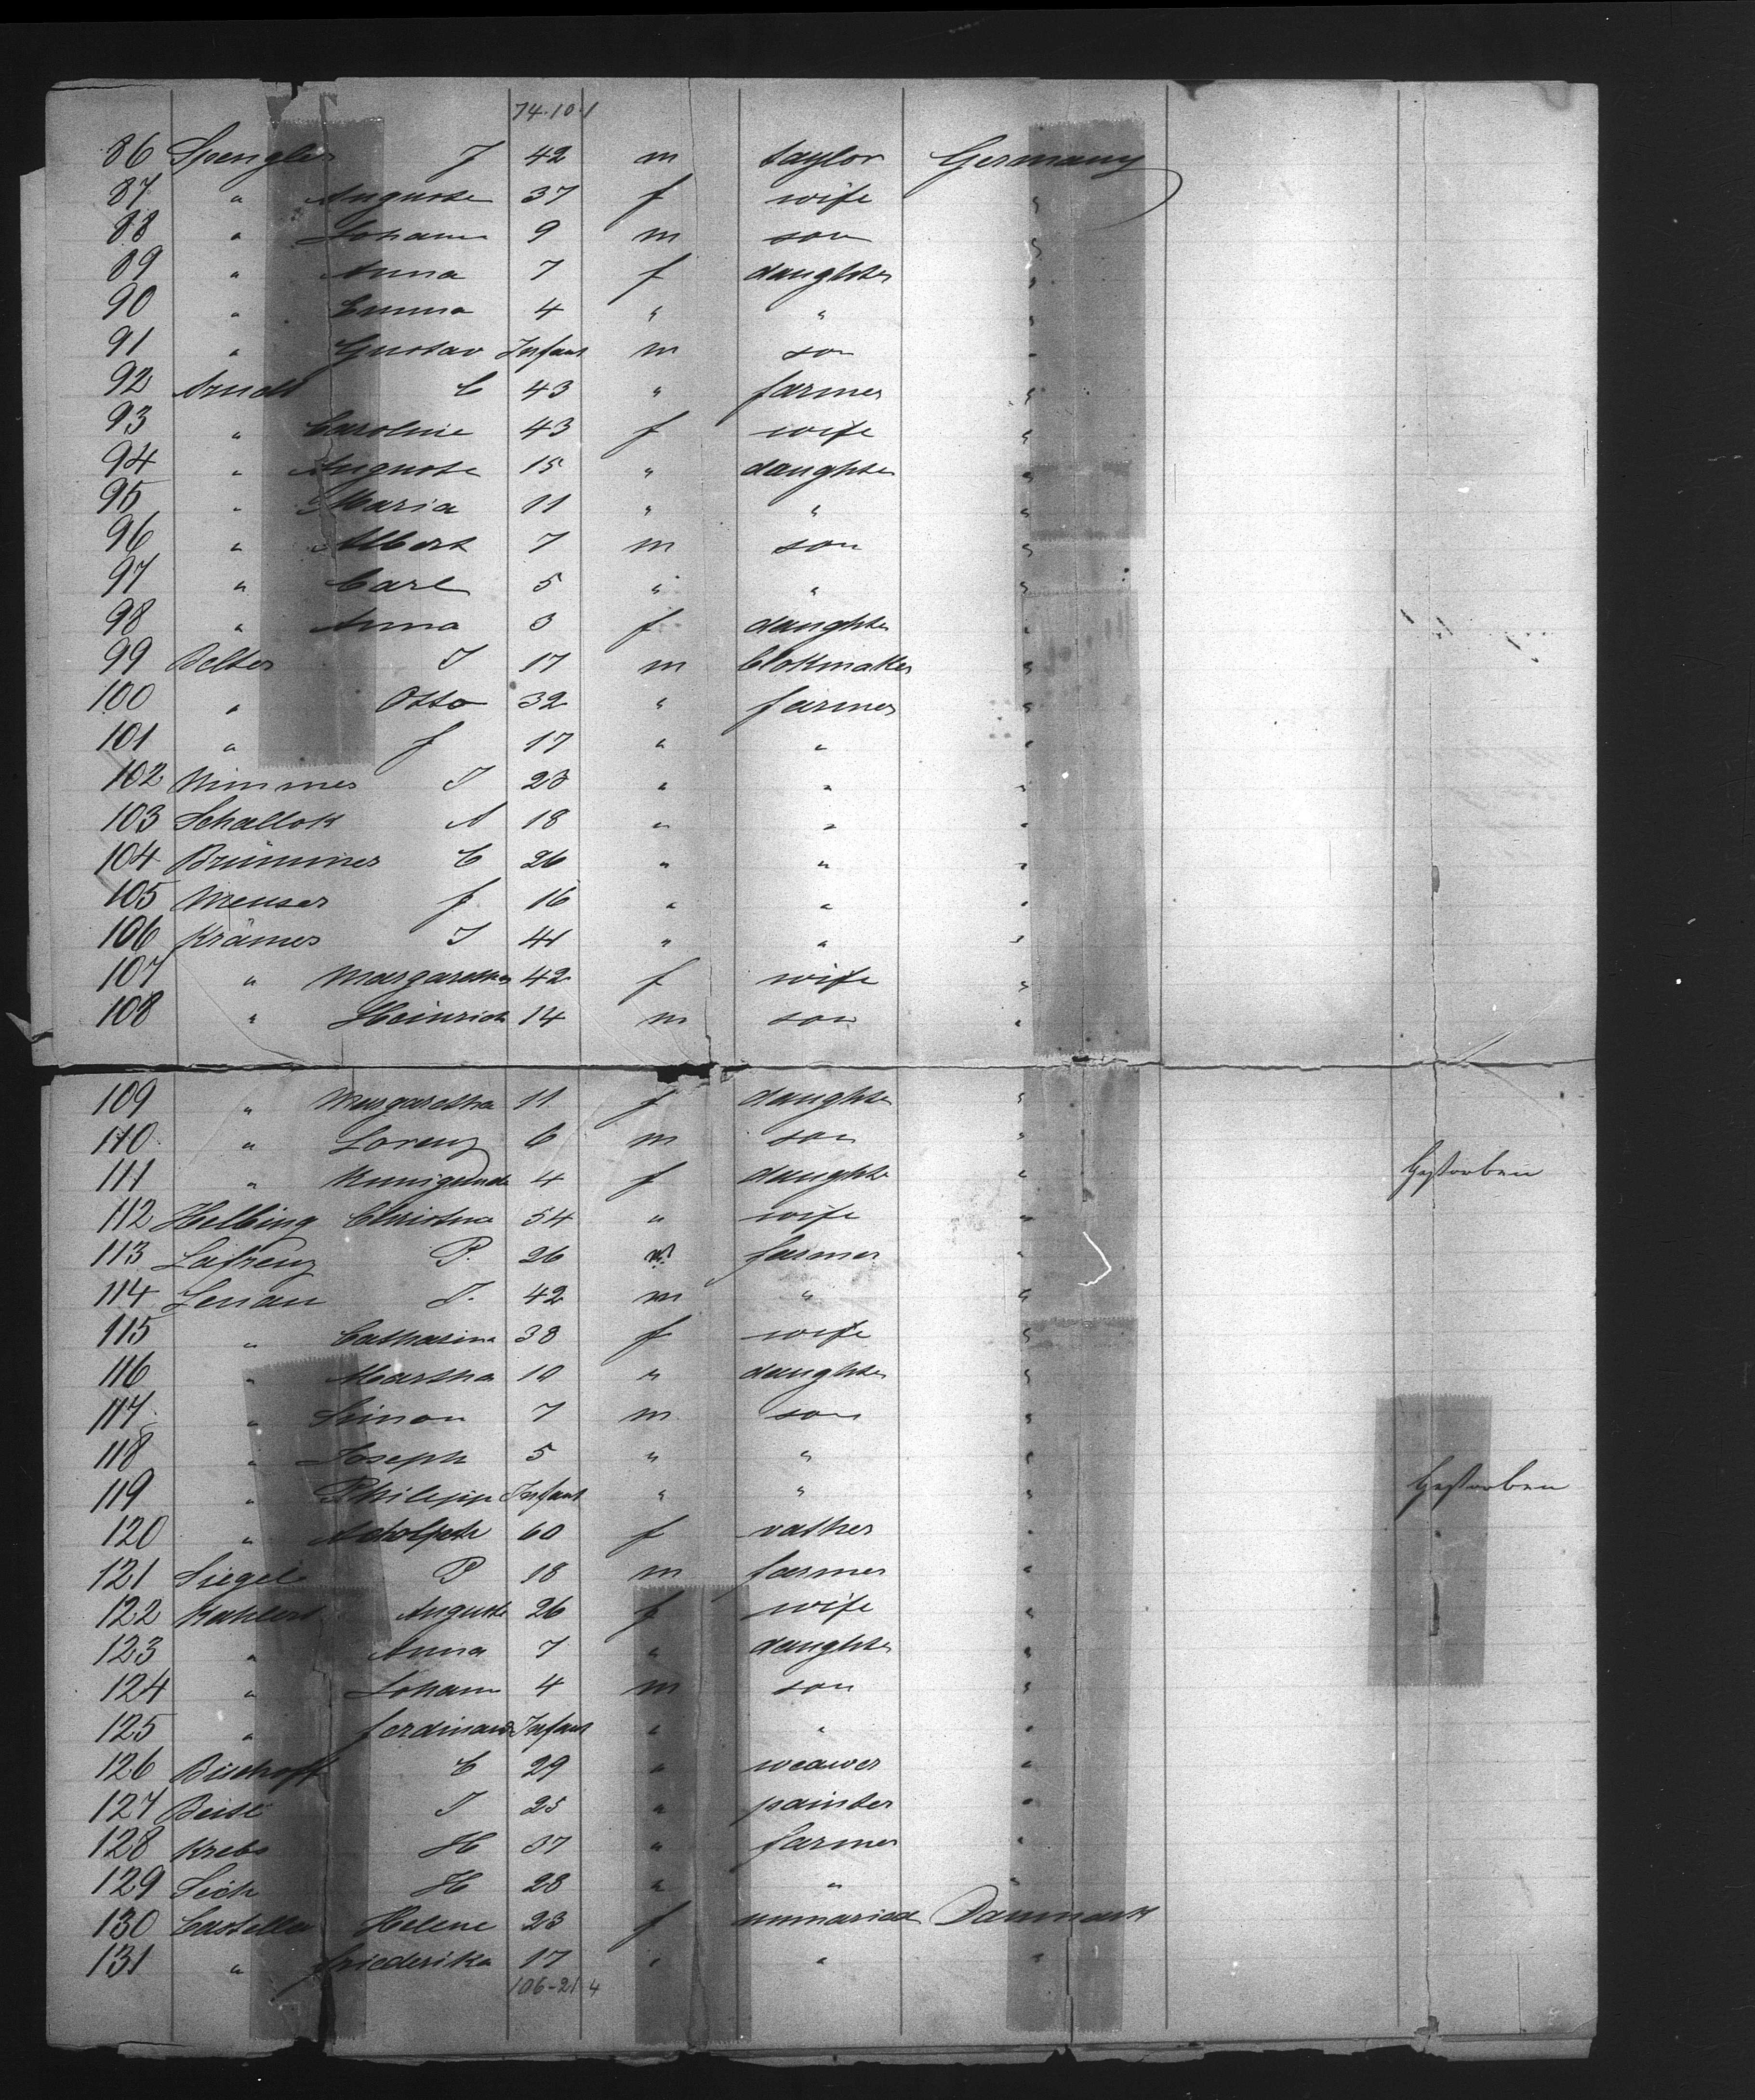 74.10.1
86 Spengler J 42 m taylor Germany
87 " Auguste 37 f wife "
88 " Johann 9 m son "
89 " Anna 7 f daughter "
90 " Emma 4 " " "
91 " Gustav Infant m son "
92 Arndt C 43 " farmer "
93 " Caroline 43 f wife "
94 " Auguste 15 " daughter "
95 " Maria 11 " " "
96 " Albert 7 m son "
97 " Carl 5 " " "
98 " Anna 3 f daughter "
99 Belter J 17 m clokmaker "
100 " Otto 32 " farmer "
101 " f 17 " " "
102 Wimmer J 23 " " "
103 Schallok A 18 " " "
104 Brümmer C 26 " " "
105 Meuser f 16 " " "
106 Krämer J 41 " " "
107 " Margaretha 42 f wife "
108 " Heinrich 14 m son "
109 " Margaretha 11 f daughter "
110 " Lorenz 6 m son "
111 " Kunigunde 4 f daughter " Gestorben
112 Helbing Christina 54 " wife "
113 Lafrenz P. 26 m farmer "
114 Lenau J. 42 m " "
115 " Catharina 38 f wife "
116 " Martha 10 " daughter "
117 " Simon 7 m son "
118 " Joseph 5 " " "
119 " Philipp Infant " " " Gestorben
120 " Adolph 60 f vather "
121 Siegel P 18 m farmer "
122 Kahlert Auguste 26 f wife "
123 " Anna 7 " daughter "
124 " Johann 4 m son "
125 " ferdinand Infant " " "
126 Bischoff C 29 " weawer "
127 Beise J 25 " painter "
128 Krebs H 37 " farmer "
129 Sich H 28 " " "
130 Castella Helene 23 f unmaried Danmark
131 " friederika 17 " " "
106-21.4